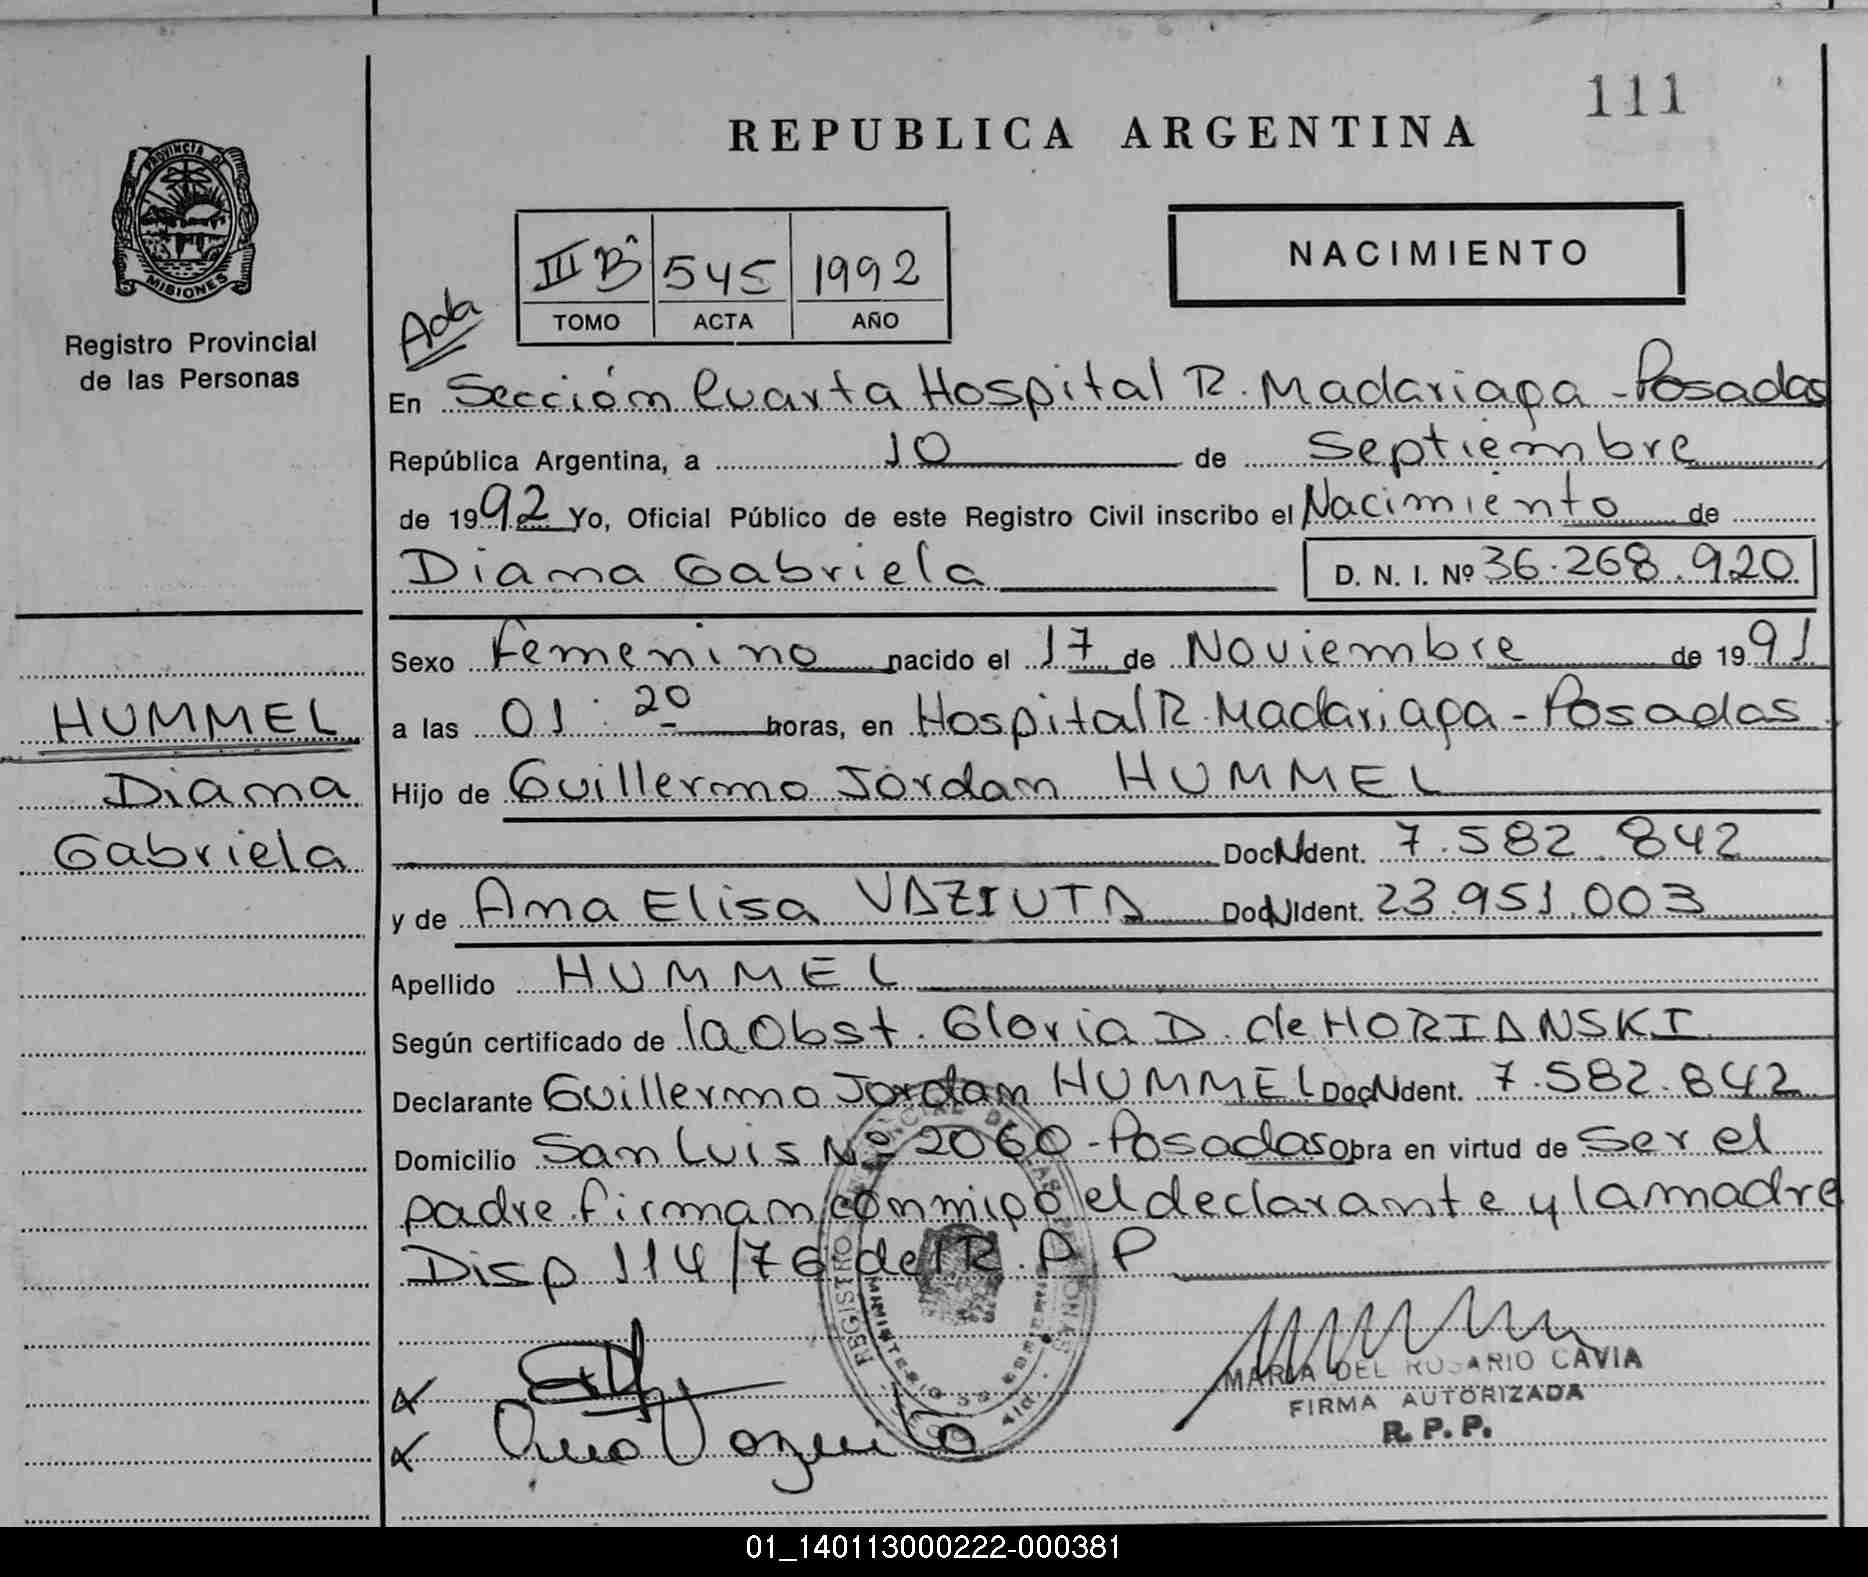 111
REPUBLICA ARGENTINA
PROVINCIA DE
MISIONES
Registro Provincial
de las Personas
NACIMIENTO
III Bº 545 1992
TOMO ACTA AÑO
Ada
En Sección Cuarta Hospital R. Madariaga - Posadas
República Argentina, a 10 de Septiembre
de 1992 Yo, Oficial Público de este Registro Civil inscribo el Nacimiento de
Diana Gabriela D. N. I. Nº 36.268.920
Sexo Femenino nacido el 17 de Noviembre de 1991
HUMMEL
Diana
Gabriela
a las 01:20 horas, en Hospital R. Madariaga - Posadas.
Hijo de Guillermo Jordan HUMMEL
Doc N Ident. 7.582.842
y de Ana Elisa VAZIUTA Doc N Ident. 23.951.003
Apellido HUMMEL
Según certificado de la Obst. Gloria D. de HORIANSKI
Declarante Guillermo Jordan HUMMEL Doc N Ident. 7.582.842
Domicilio San Luis Nº 2060 - Posadas Obra en virtud de Ser el
padre firman conmigo el declarante y la madre
Disp 114/76 del R. P P
MARIA DEL ROSARIO CAVIA
FIRMA AUTORIZADA
R. P. P.
01_140113000222-000381